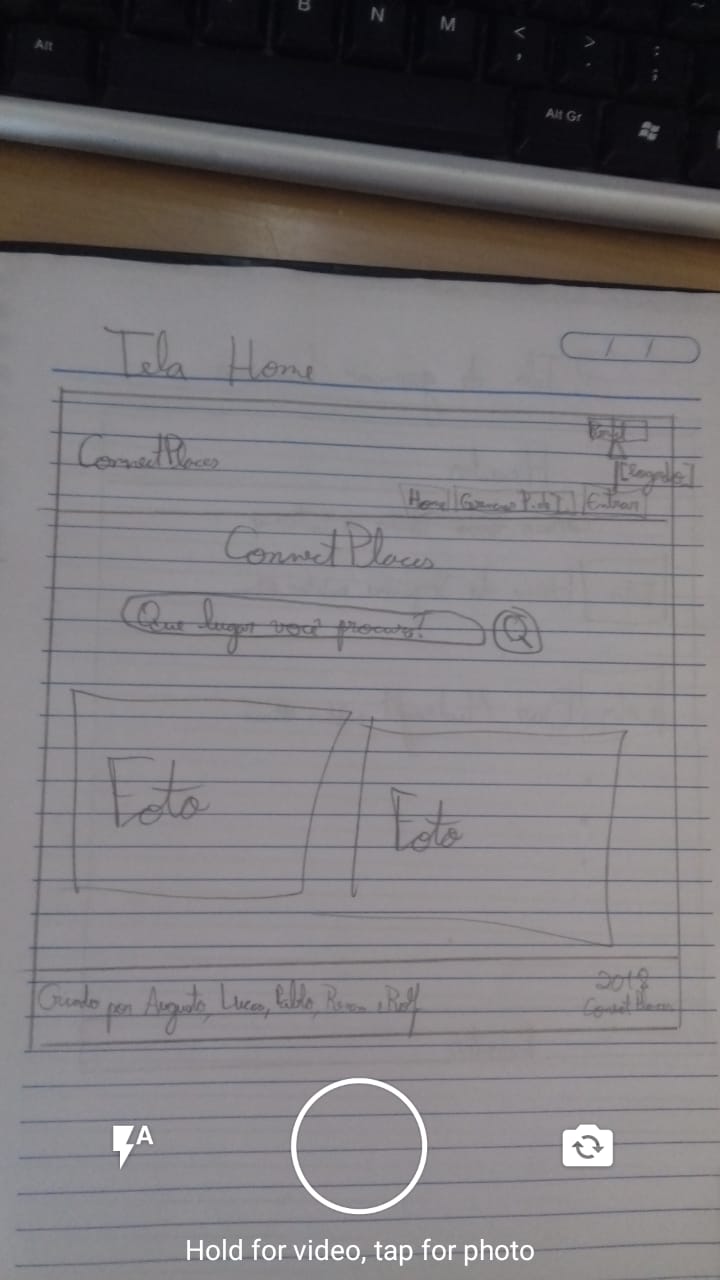 B N M < >
Alt , . : ;
Alt Gr
Tela Home / /
ConnectPlaces
[Logado]
Home Entrar
ConnectPlaces
Que lugar você procura?
Foto Foto
2018
Criado por Augusto, Lucas, Pablo, Renan e Rolf
Connect Places
A
Hold for video, tap for photo